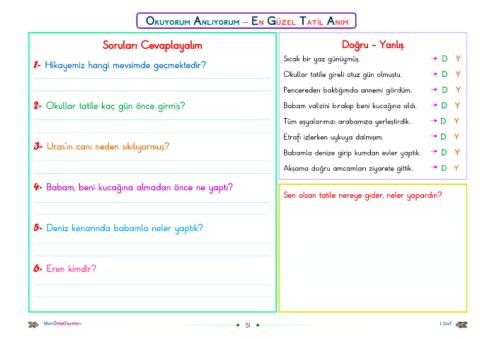 OKUYORUM ANLIYORUM – EN GÜZEL TATİL ANIM
Soruları Cevaplayalım
1- Hikayemiz hangi mevsimde geçmektedir?
2- Okullar tatile kaç gün önce girmiş?
3- Uras'ın canı neden sıkılıyormuş?
4- Babam, beni kucağına almadan önce ne yaptı?
5- Deniz kenarında babamla neler yaptık?
6- Eren kimdir?
Doğru - Yanlış
Sıcak bir yaz günüymüş. → D Y
Okullar tatile gireli otuz gün olmuştu. → D Y
Pencereden baktığımda annemi gördüm. → D Y
Babam valizini bırakıp beni kucağına aldı. → D Y
Tüm eşyalarımızı arabamıza yerleştirdik. → D Y
Etrafı izlerken uykuya dalmışım. → D Y
Babamla denize girip kumdan evler yaptık. → D Y
Akşama doğru amcamları ziyarete gittik. → D Y
Sen olsan tatile nereye gider, neler yapardın?
51
1. Sınıf